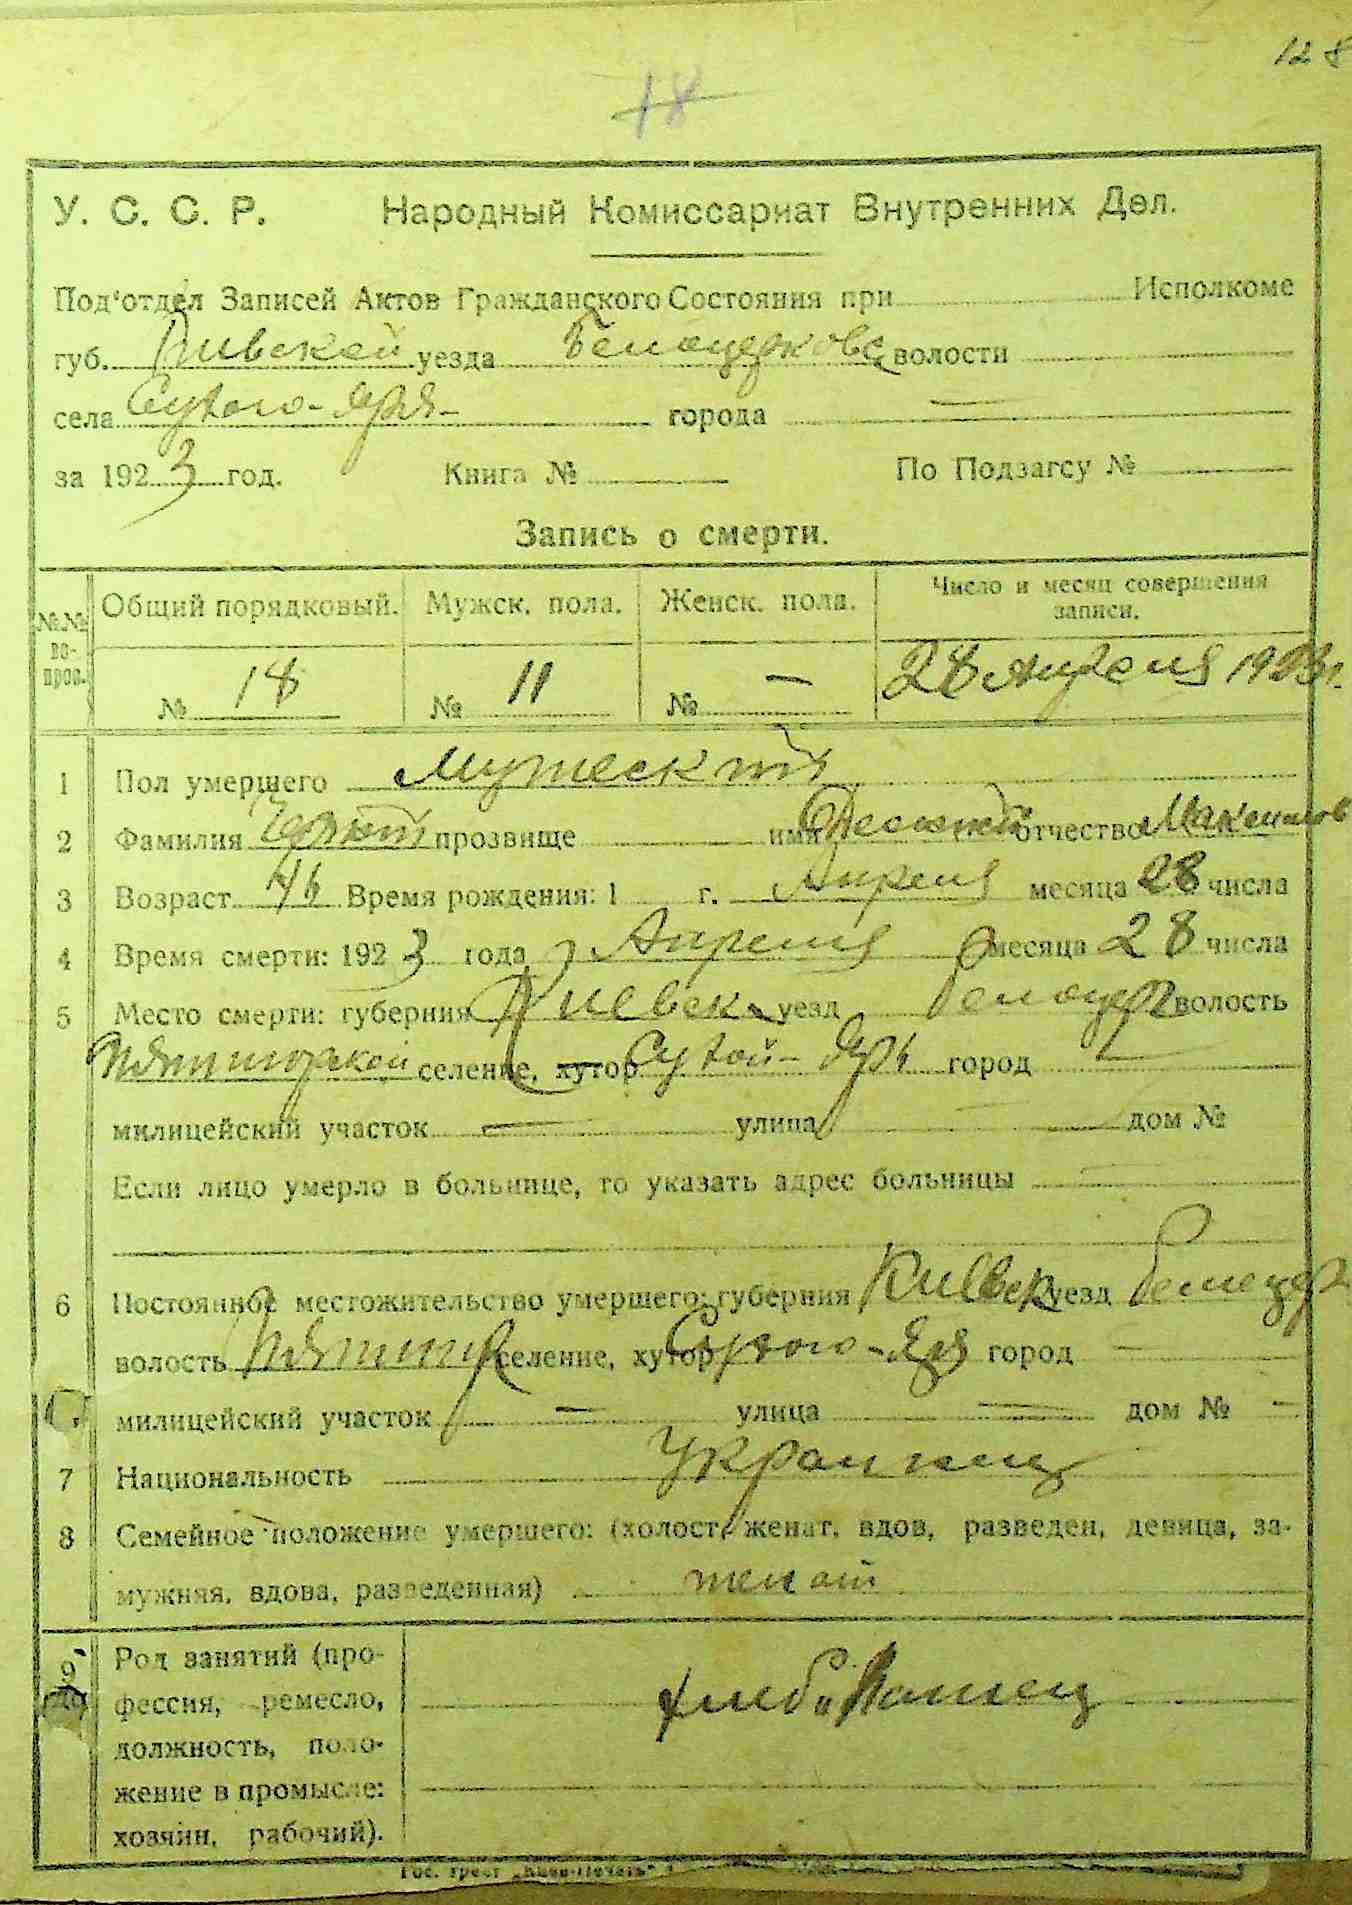 128
18
У. С. С. Р. Народный Комиссариат Внутренних Дел.
Под'отдел Записей Актов Гражданского Состояния при Исполкоме
губ. Киевской уезда Белоцерковс волости
села Сухого-Яра города —
за 1923 год. Книга № По Подзагсу №
Запись о смерти.
№№ вопрос. Общий порядковый. Мужск. пола. Женск. пола. Число и месяц совершения записи.
№ 18 № 11 № — 28 Апреля 1923 г.
1 Пол умершего Мужеский
2 Фамилия прозвище имя отчество Максимов
3 Возраст 46 Время рождения: 1 г. Апреля месяца 28 числа
4 Время смерти: 1923 года Апреля месяца 28 числа
5 Место смерти: губерния Киевск уезд Белоцер волость
селение, хутор Сухой-Яръ город —
милицейский участок — улица — дом №
Если лицо умерло в больнице, то указать адрес больницы —
6 Постоянное местожительство умершего: губерния Киевск уезд Белоцер
волость селение, хутор Сухого-Яра город —
милицейский участок — улица — дом № —
7 Национальность Украинец
8 Семейное положение умершего: (холост, женат, вдов, разведен, девица, за-
мужняя, вдова, разведенная) женат
9 Род занятий (про-
фессия, ремесло, хлебопашец
должность, поло-
жение в промысле:
хозяин, рабочий).
Гос. трест „Киев-Печать"